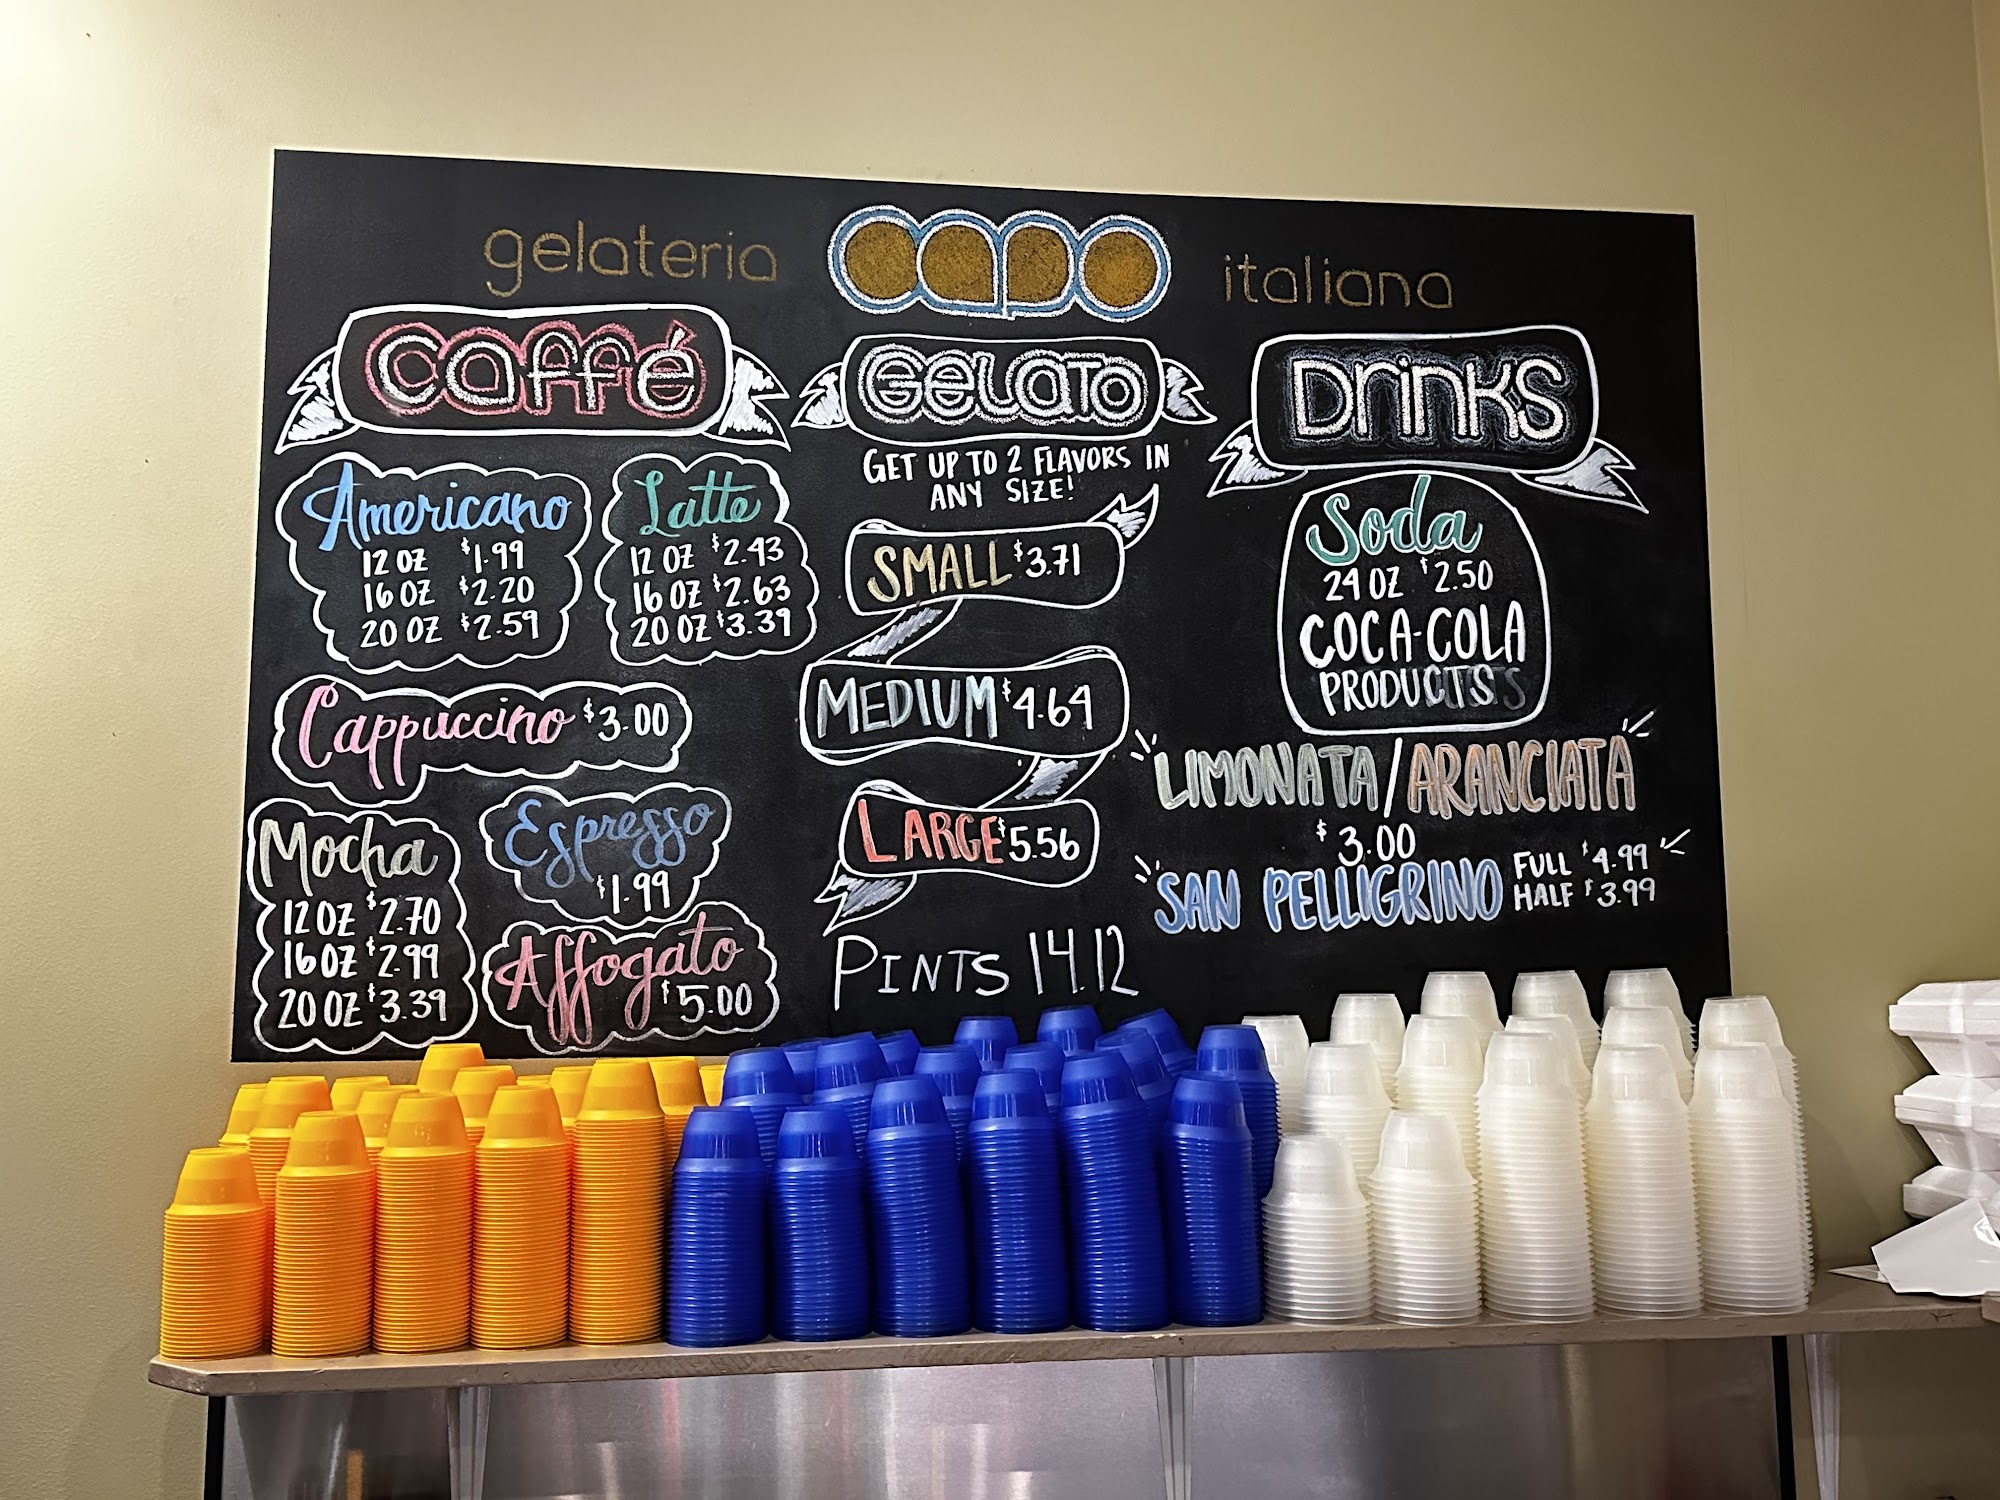 gelateria CAPO italiana
Caffé
Americano
12 OZ $1.99
16 OZ $2.20
20 OZ $2.59
Latte
12 OZ $2.43
16 OZ $2.63
20 OZ $3.39
Cappuccino $3.00
Mocha
12 OZ $2.70
16 OZ $2.99
20 OZ $3.39
Espresso
$1.99
Affogato
$5.00
GELATO
GET UP TO 2 FLAVORS IN
ANY SIZE!
SMALL $3.71
MEDIUM $4.64
LARGE $5.56
PINTS 14.12
Drinks
Soda
24 OZ $2.50
COCA-COLA
PRODUCTS
LIMONATA/ARANCIATA
$3.00
SAN PELLIGRINO
FULL $4.99
HALF $3.99